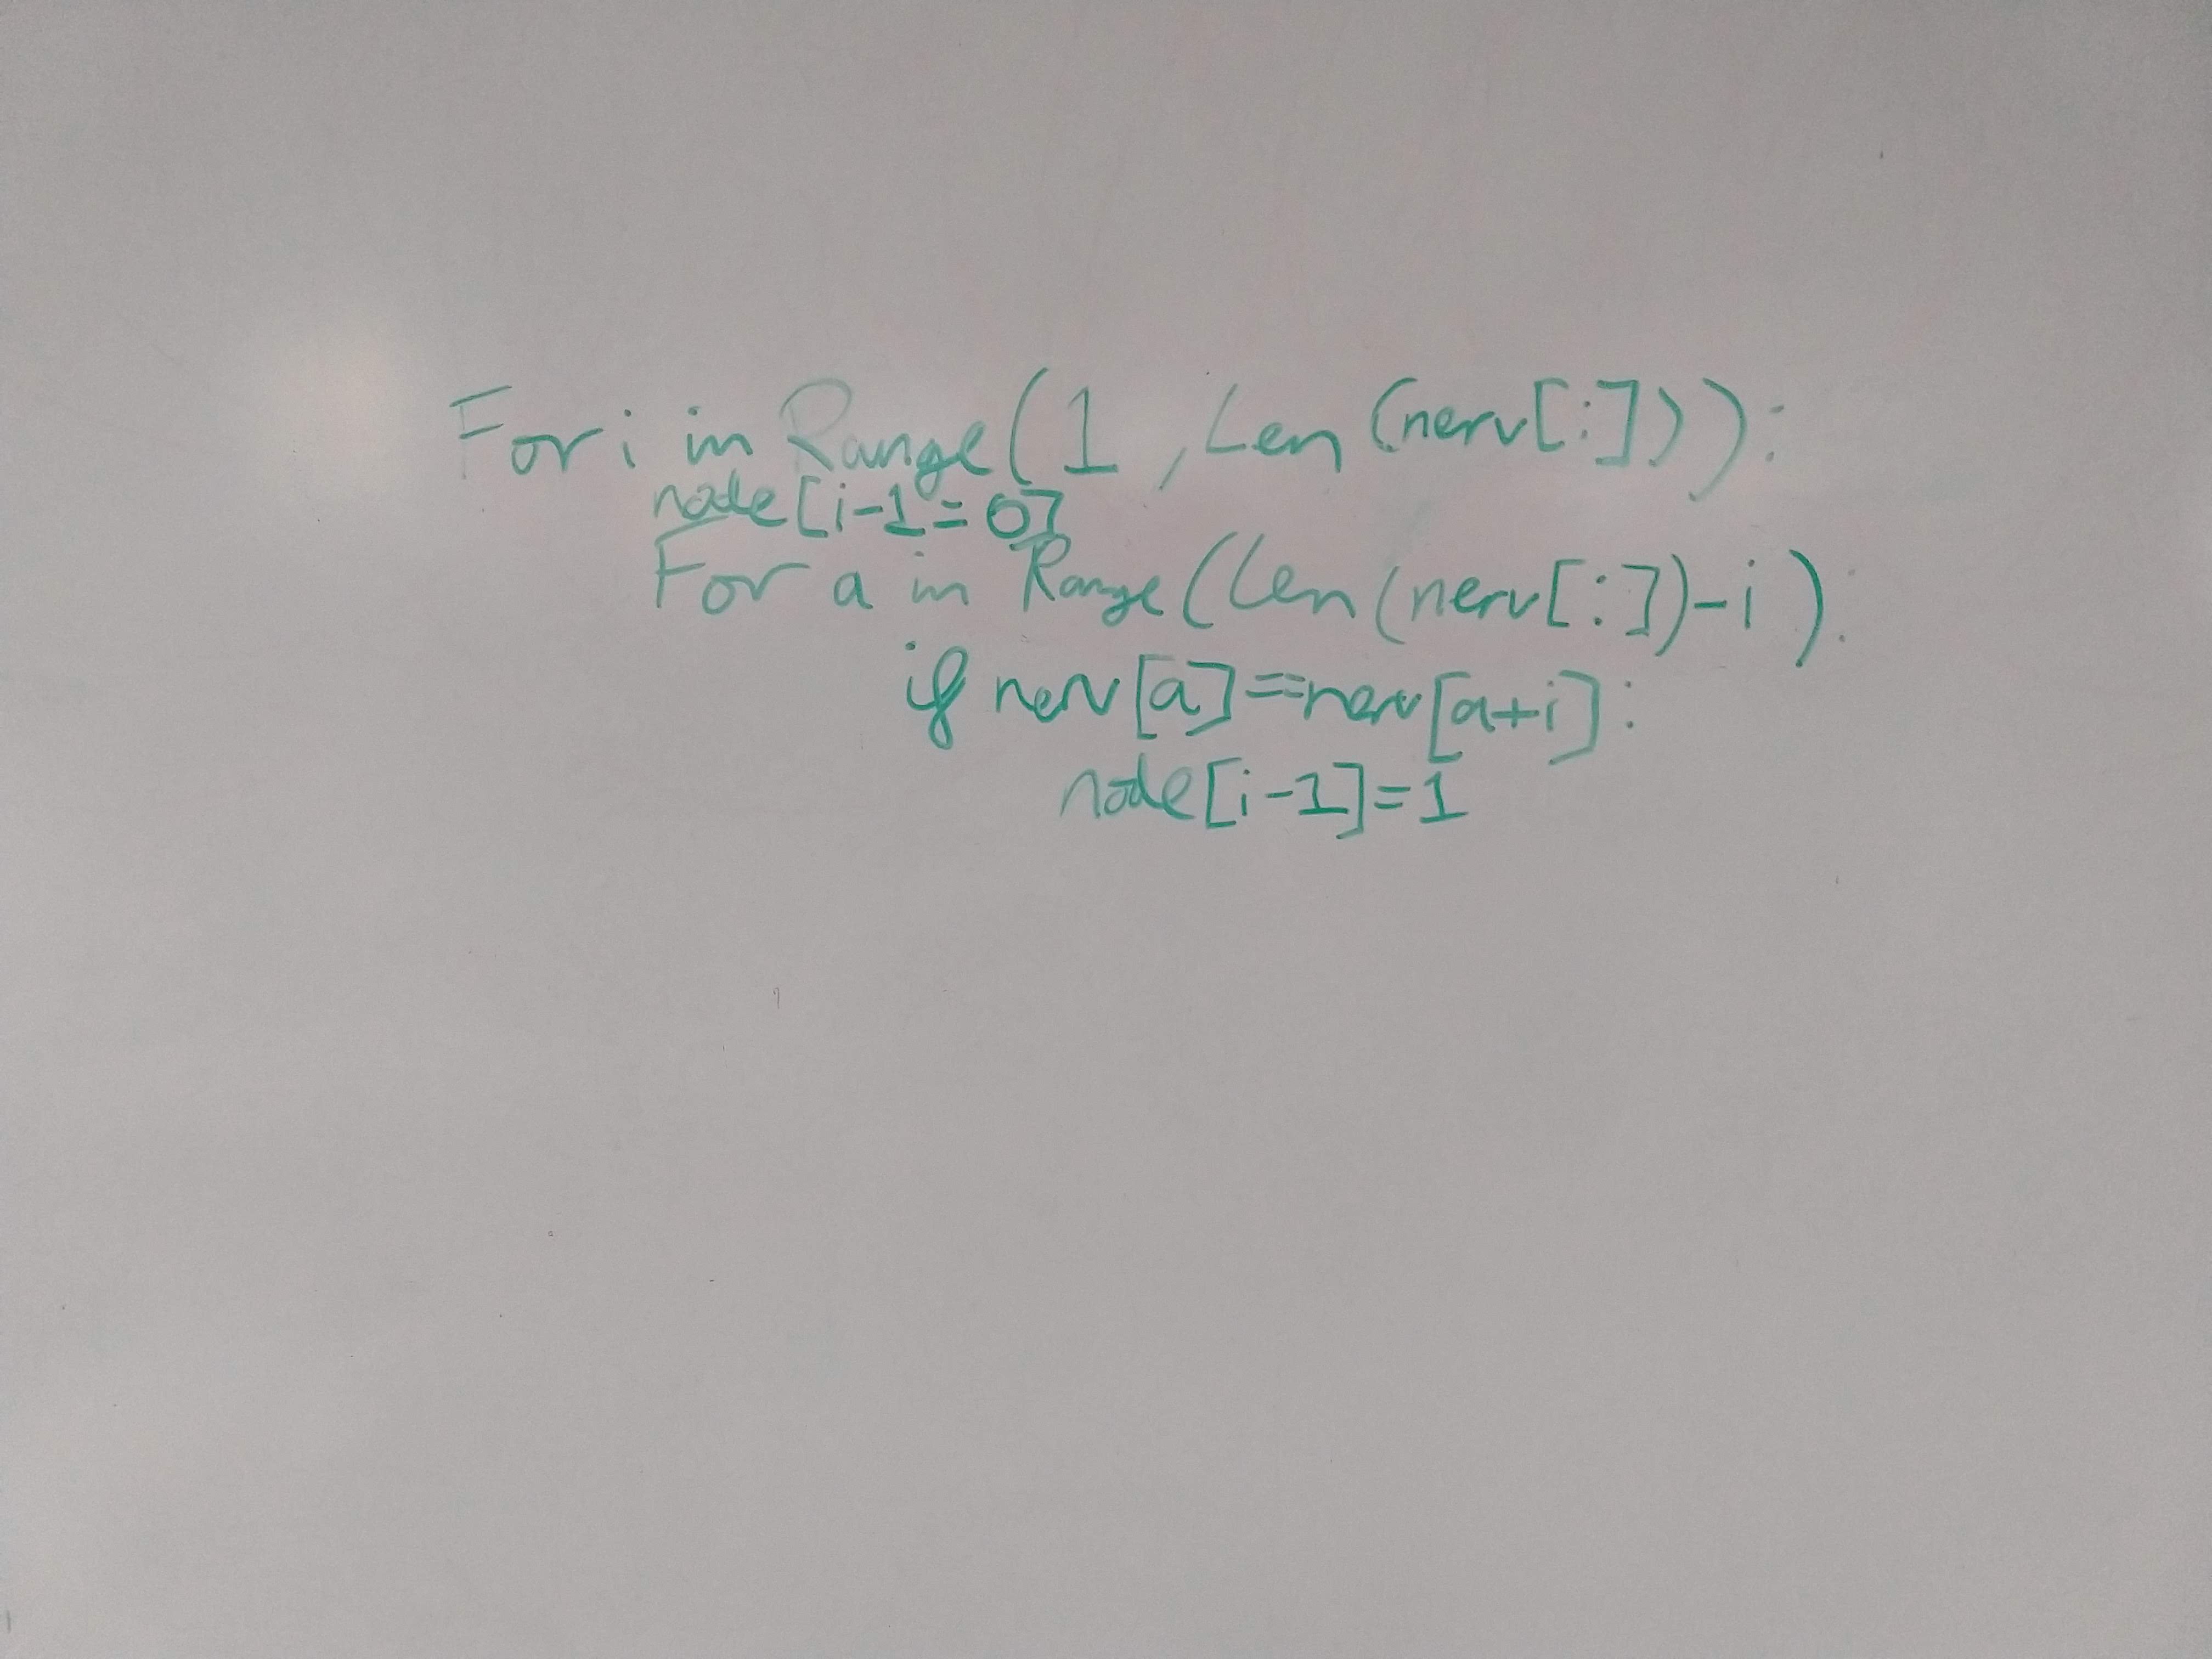 For i in Range(1, Len(nerv[:])):
node[i-1=0]
For a in Range(Len(nerv[:])-i):
if nerv[a]==nerv[a+i]:
node[i-1]=1